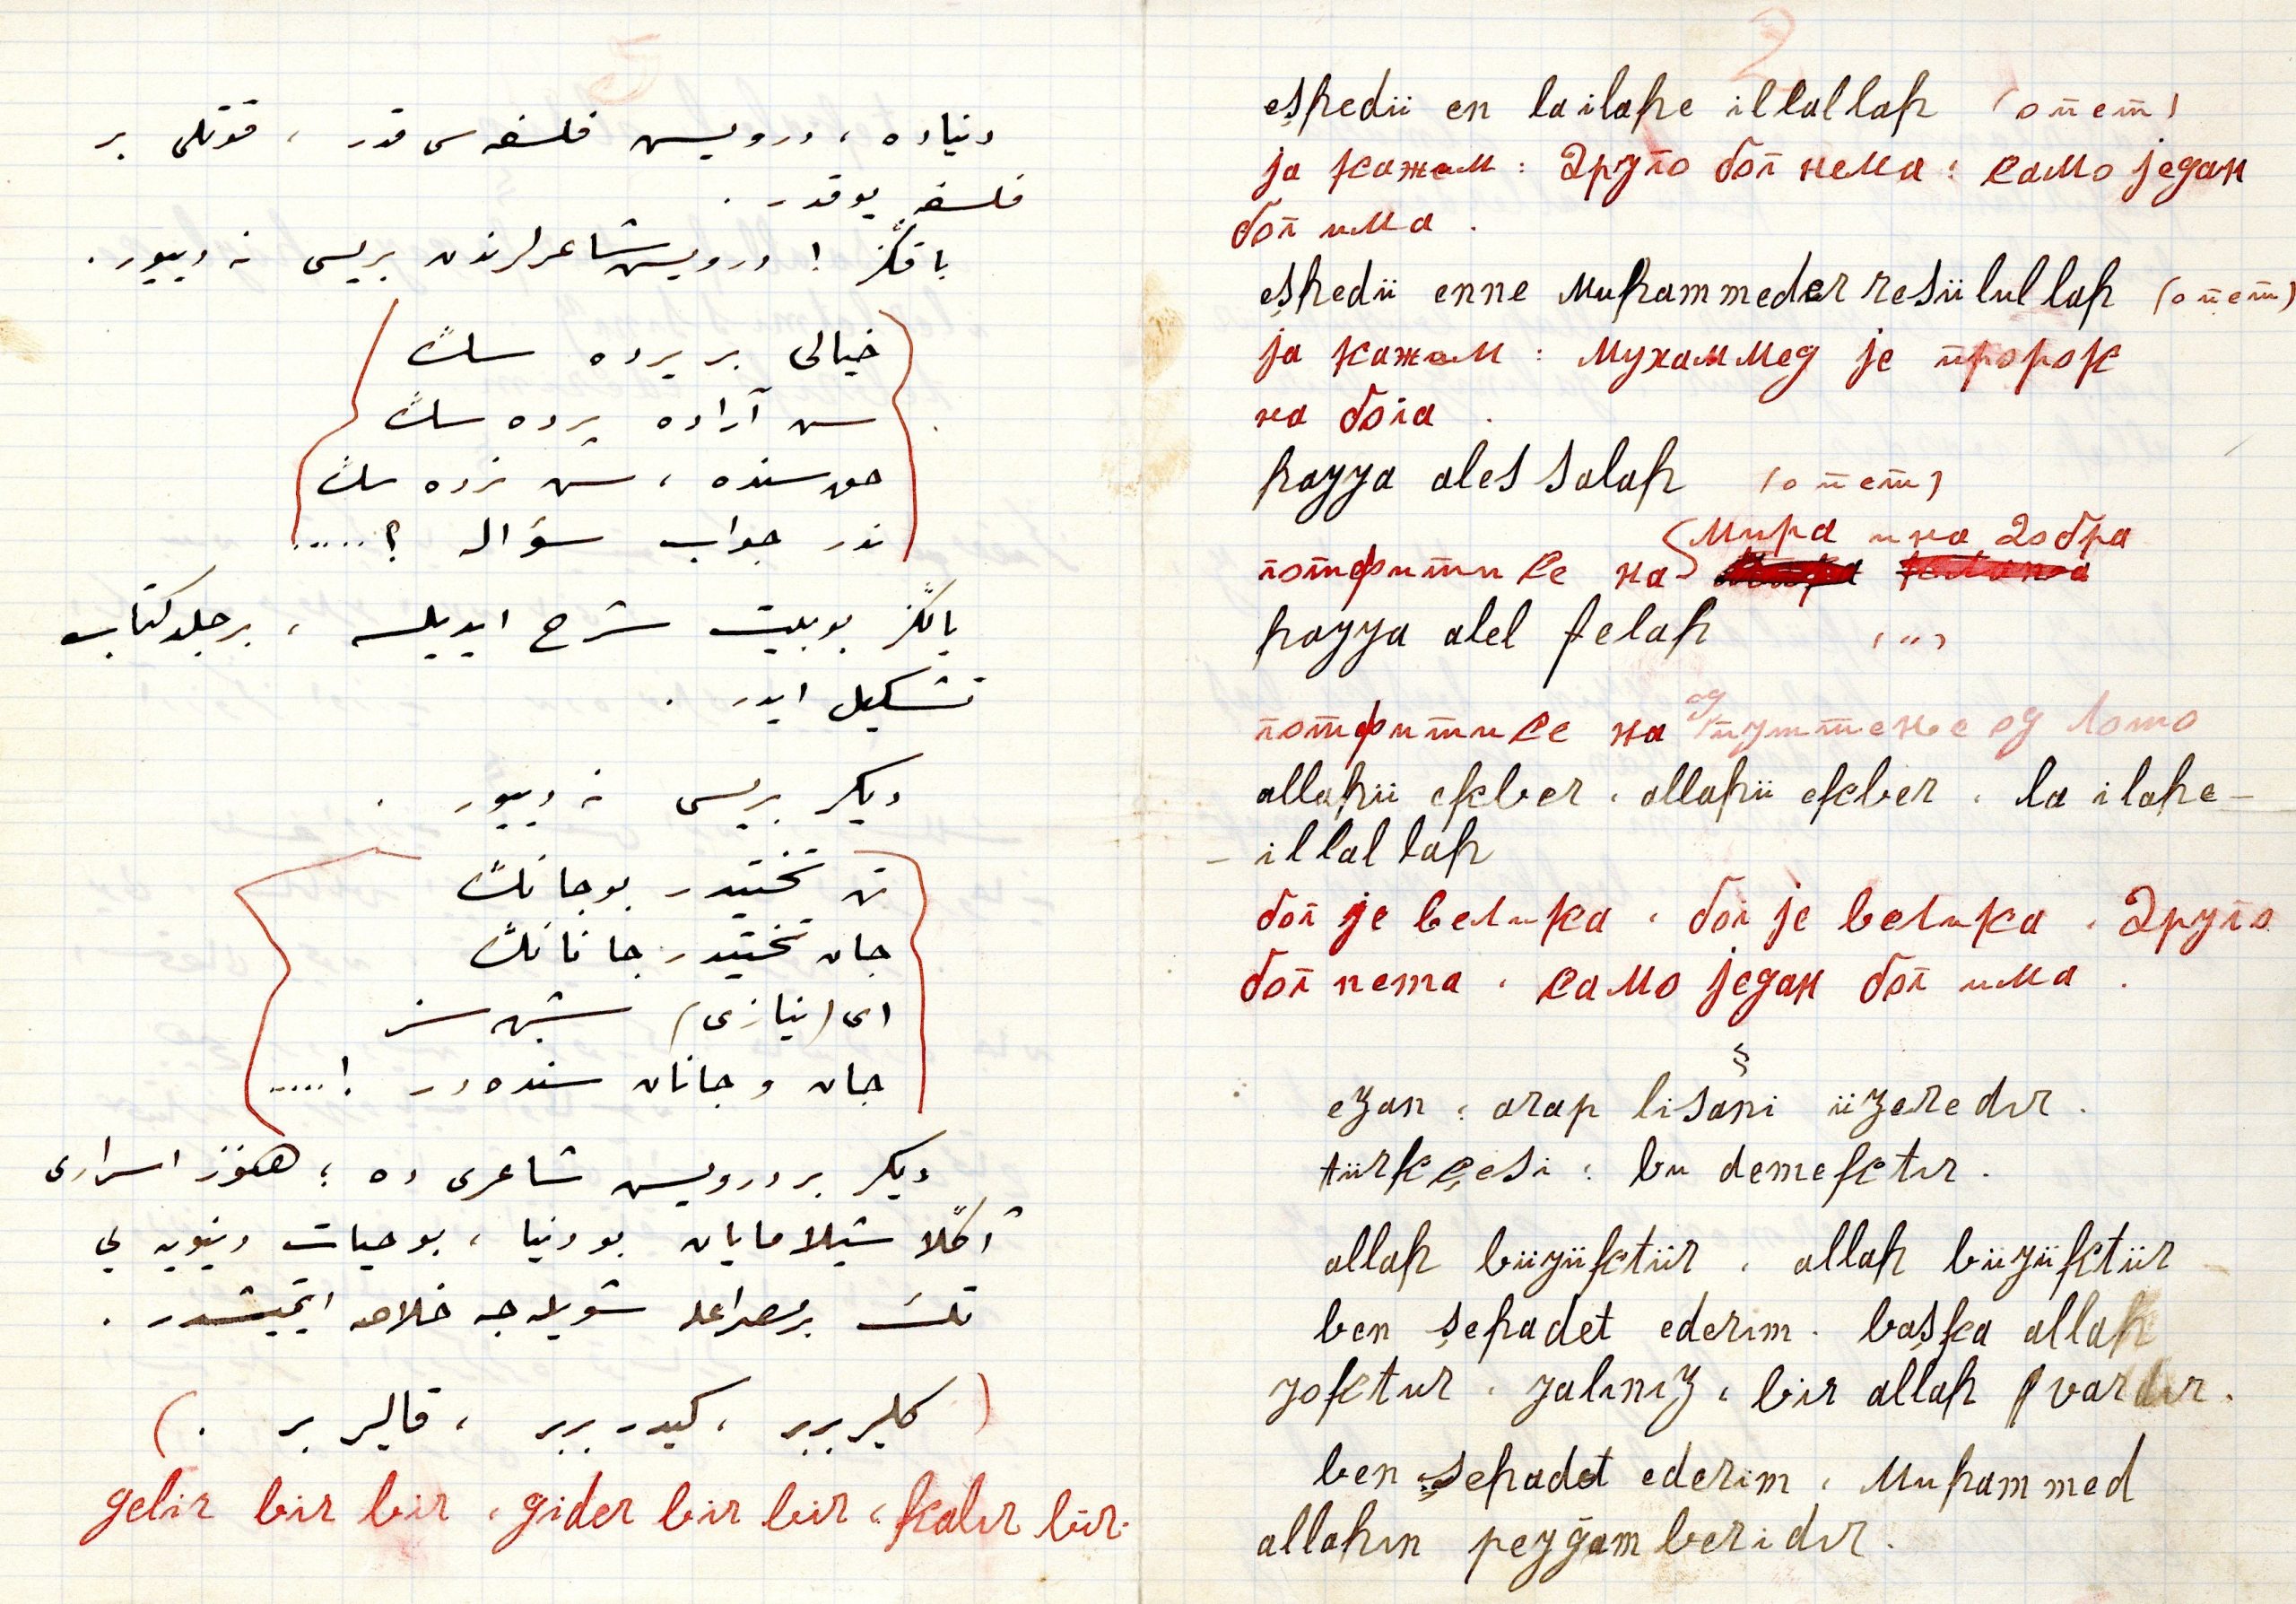 دنیاده ، درویس فلسفه‌سی قدر ، قوتلی بر
فلسفه یوقدر .
باقڭز ! درویش شاعرلرندن بریسی نه دییور .
خیالی بر پرده سڭ
سن آراده پرده سڭ
حق سنده ، سن نرده سڭ
ندر جواب سؤاله ؟ .....
یاڭلز بو بیت شرح ایدیلسه ، بر جلد کتاب
تشکیل ایدر .
دیکر بریسی نه دییور .
تن تختیدر بو جانڭ
جان تختیدر جانانڭ
ای (نیازی) شبهه سز
جان و جانان سنده در ! .....
دیکر بر درویس شاعری ده ؛ هنوز اسراری
آڭلاشیلامایان بو دنیا ، بو حیات دنیویه یی
تك بر مصراعله شویله جه خلاصه ایتمیشدر .
( کلیر بر بر ، کیدر بر بر ، قالیر بر . )
gelir bir bir , gider bir bir , kalır bir.
2
eşhedü en la ilahe illallah (опет)
ја кажем : друго бог нема : само један
бог има .
eşhedü enne Muhammeder resülullah (опет)
ја кажем : Мухаммед је пророк
на бога .
hayya ales salah (опет)
Мира и на добра
готфити се на
hayya alel felah (,,)
готфити се на од лошо
allahü ekber , allahü ekber , la ilahe –
– illallah
бог је велика , бог је велика , друго
бог нета , само један бог има .
§
ezan , arap lisani üzeredır .
türkçesi : bu demektır .
allah büyüktür , allah büyüktür
ben şehadet ederım . başka allah
yoktur , yalınız , bir allah vardır .
ben şehadet ederim , Muhammed
allahın peyğamberidır .